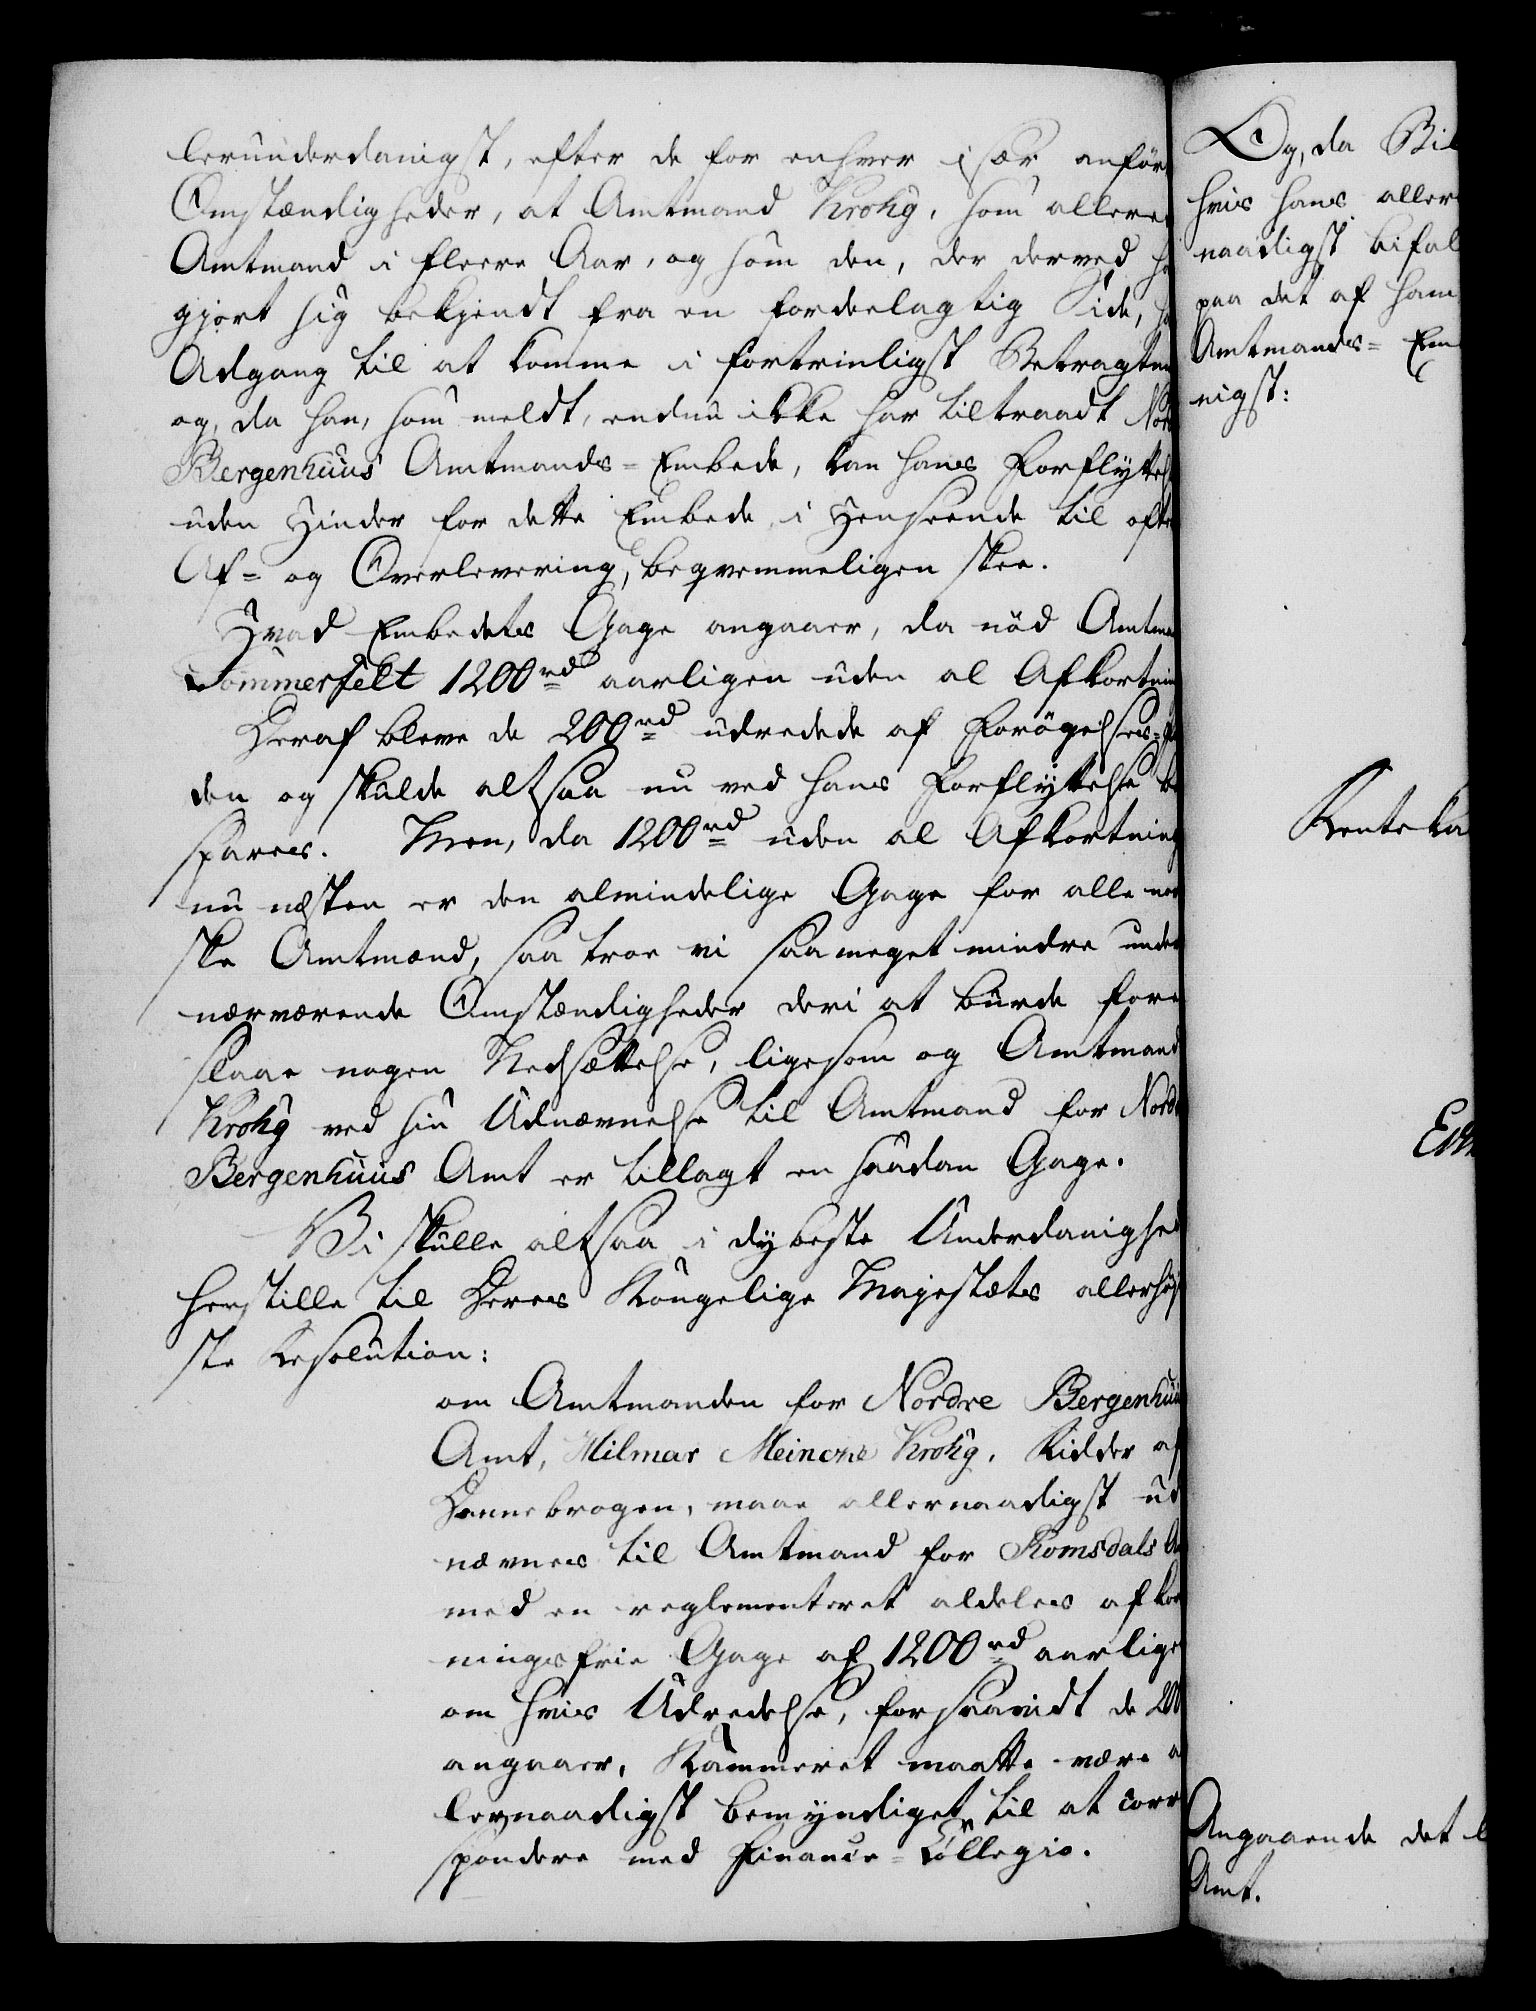 lerunderdanigst, efter de for enhver især anför
Omstændigheder, at Amtmand Krohg, som allere
Amtmand i fleere Aar, og som den, der derved ha
gjort sig bekjendt fra en fordeelagtig Side, ha
Adgang til at komme i fortrinligst Betragtn
og, da han, som meldt, endnu ikke har tiltraadt Nor
Bergenhuus Amtmands-Embede, kan hans Forflyttels
uden Hinder for dette Embede i Henseende til ofte
Af- og Overlevering, beqvemmeligen skee.
Hvad Embedets Gage angaaer, da nød Amtma
Sommerfelt 1200 rd aarligen uden al Afkortnin
Deraf bleve de 200 rd udredede af Forøgelses-F
den og skulde altsaa nu ved hans Forflyttelse be
spares. Men, da 1200 rd uden al Afkortning
nu næsten er den almindelige Gage for alle nor
ske Amtmænd, saa troe vi saameget mindre under
nærværende Omstændigheder deri at burde fore
slaae nogen Nedsættelse, ligesom og Amtmand
Krohg ved sin Udnævnelse til Amtmand for Nordr
Bergenhuus Amt er tillagt en saadan Gage.
Vi skulle altsaa i dybeste Underdanighed
henstille til Deres Kongelige Majestæts allerhøi
ste Resolution:
om Amtmanden for Nordre Bergenhuu
Amt, Hilmar Meincke Krohg, Ridder af
Dannebrogen, maae allernaadigst ud
nævnes til Amtmand for Romsdals A
med en reglementeret aldeles afkor
ningsfrie Gage af 1200 rd aarlige
om hvis Udredelse, forsaavidt de 200
angaaer, Kammeret maatte være a
lernaadigst bemyndiget til at corr
spondere med Finance-Collegio.
Og, da Bil
hvis hans aller
naadigst bifal
paa det af ham
Amtmands- Em
nigst:
Renteka
Angaaende det l
Amt.